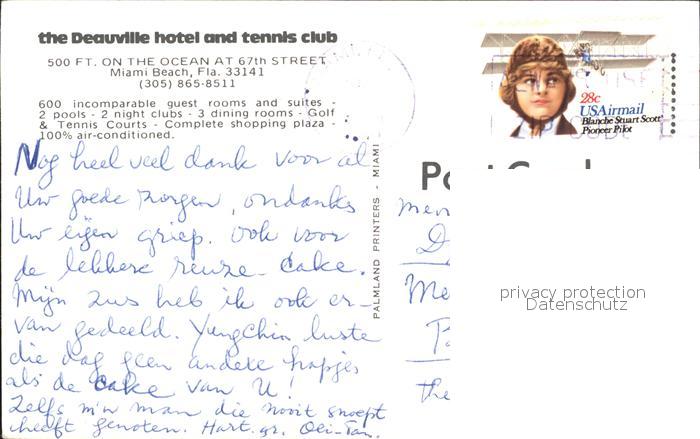 the Deauville hotel and tennis club
500 FT. ON THE OCEAN AT 67th STREET
Miami Beach, Fla. 33141
(305) 865-8511
600 incomparable guest rooms and suites -
2 pools - 2 night clubs - 3 dining rooms - Golf
& Tennis Courts - Complete shopping plaza -
100% air-conditioned.
Nog heel veel dank voor al
Uw goede zorgen, ondanks
Uw eigen griep. Ook voor
de lekkere reuze-cake.
Mijn zus heb ik ook er-
van gedeeld. YungChin lustte
die dag geen andere hapjes
als de cake van U!
Zelfs m'n man die nooit snoept
heeft genoten. Hart. gr. Oei-Tan.
PALMLAND PRINTERS - MIAMI
28c
USAirmail
Blanche Stuart Scott
Pioneer Pilot
Po
Mev
D
Me
The
privacy protection
Datenschutz